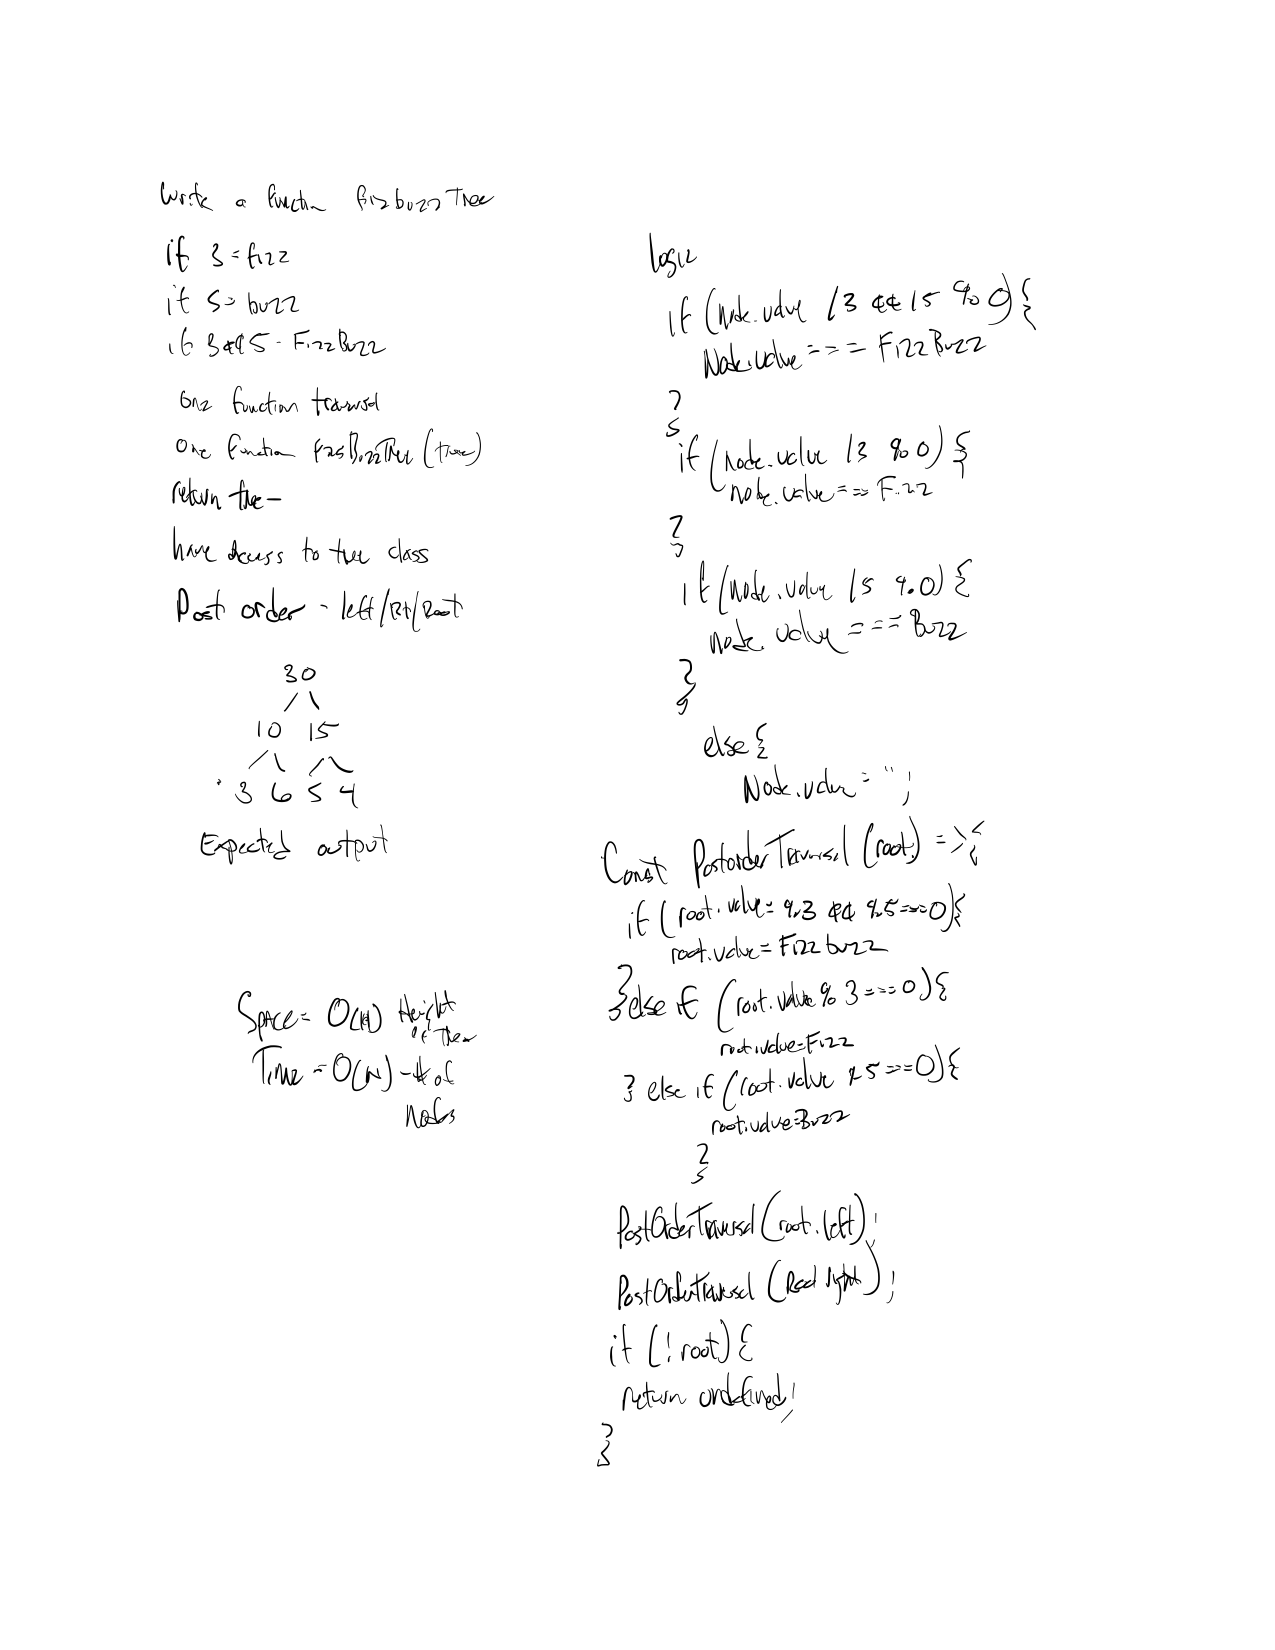 Write a function fizzbuzzTree
if 3 = fizz
if 5 = buzz
if 3 && 5 - FizzBuzz
one function traversal
one function FizzBuzzTree (tree)
return tree -
have access to tree class
Post order - left/Rt/Root
30
10 15
3 6 5 4
Expected output
Space = O(H) Height
of tree
Time = O(N) - # of
nodes
logic
if (node.value /3 && /5 % 0) {
Node.value === FizzBuzz
}
if (node.value /3 % 0) {
node.value === Fizz
}
if (node.value /5 % 0) {
node.value === Buzz
}
else {
Node.value = '' ;
Const PostorderTraversal (root) => {
if (root.value = %3 && %5 === 0) {
root.value = Fizzbuzz
} else if (root.value % 3 === 0) {
root.value = Fizz
} else if (root.value % 5 === 0) {
root.value = Buzz
}
PostOrderTraversal (root.left) ;
PostOrderTraversal (Root right) ;
if (! root) {
return undefined ;
}